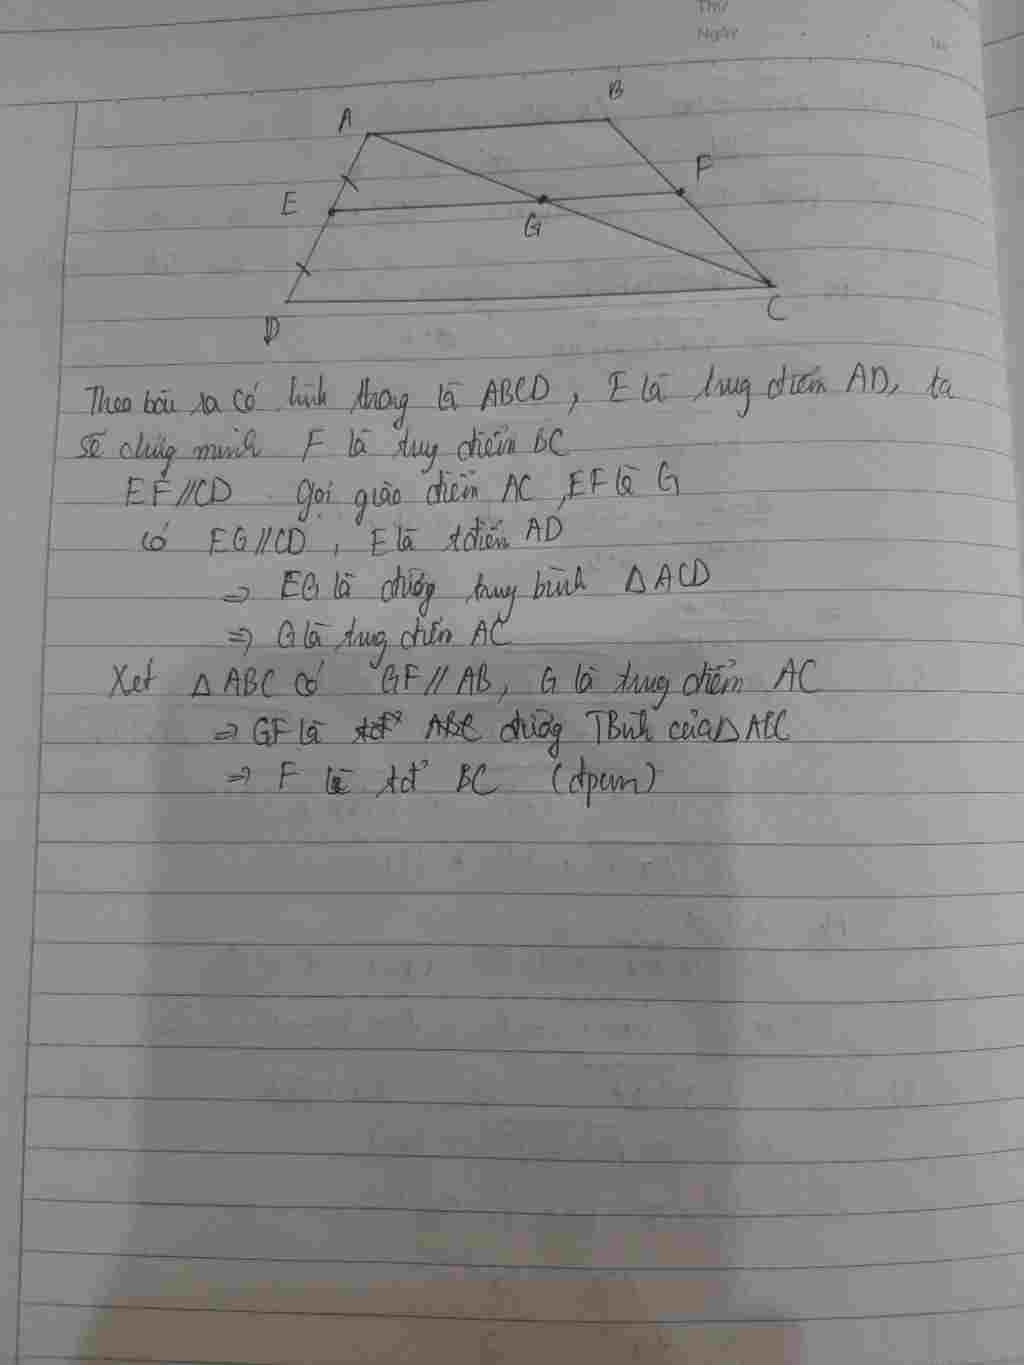 Thứ
Ngày
A
B
E
F
G
D
C
Theo bài ra có hình thang là ABCD, E là trung điểm AD, ta
sẽ chứng minh F là trung điểm BC
EF//CD gọi giao điểm AC, EF là G
có EG//CD, E là tđiểm AD
⇒ EG là đường trung bình △ACD
⇒ G là trung điểm AC
Xét △ABC có GF//AB, G là trung điểm AC
⇒ GF là đường TBình của △ABC
⇒ F là tđ BC (đpcm)